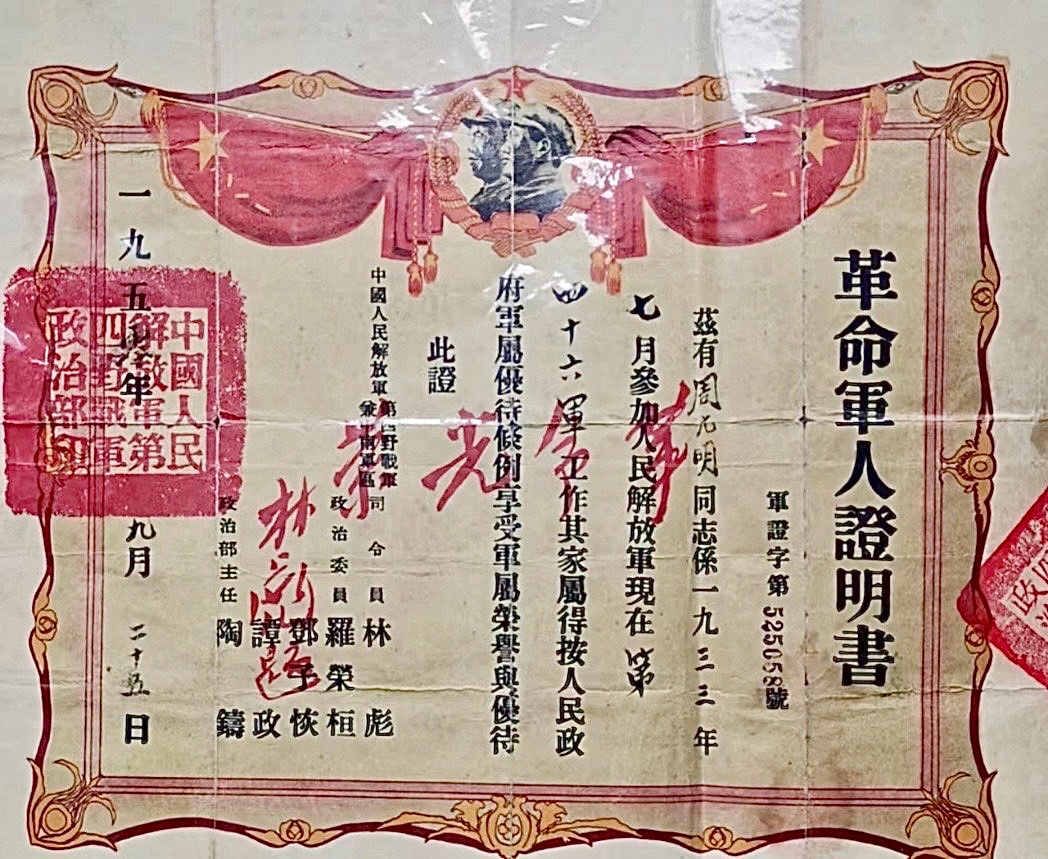 革命軍人證明書
軍證字第525058號
茲有周明同志係一九三三年
七月參加人民解放軍現在第
四十六軍工作其家屬得按人民政
府軍屬優待條例享受軍屬榮譽與優待
此證
革命光榮
林題
中國人民解放軍第四野戰軍
兼中南軍區
司令員林彪
政治委員羅榮桓
鄧子恢
譚政
政治部主任陶鑄
一九五年九月二十五日
中國人民
解放軍第
四野戰軍
政治部印
政治